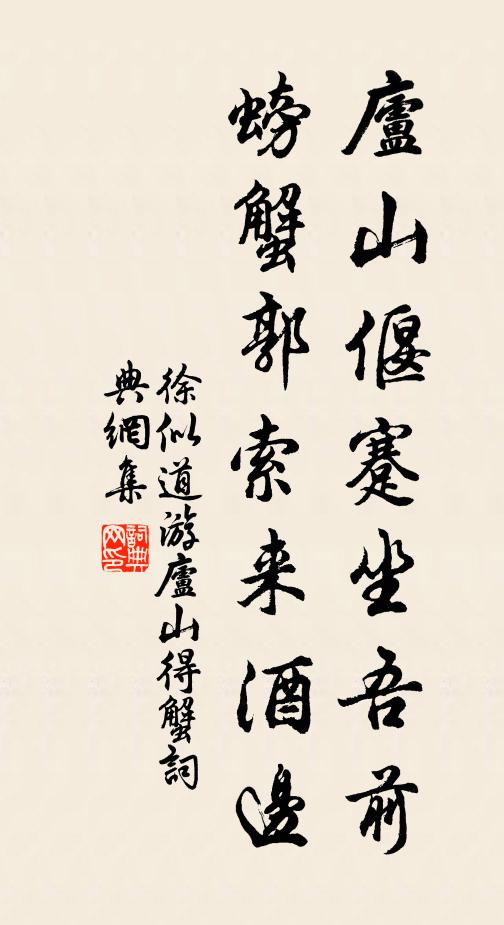 廬山偃蹇坐吾前
螃蟹郭索来酒邊
徐似道游廬山得蟹詞
典網集
詞典網印